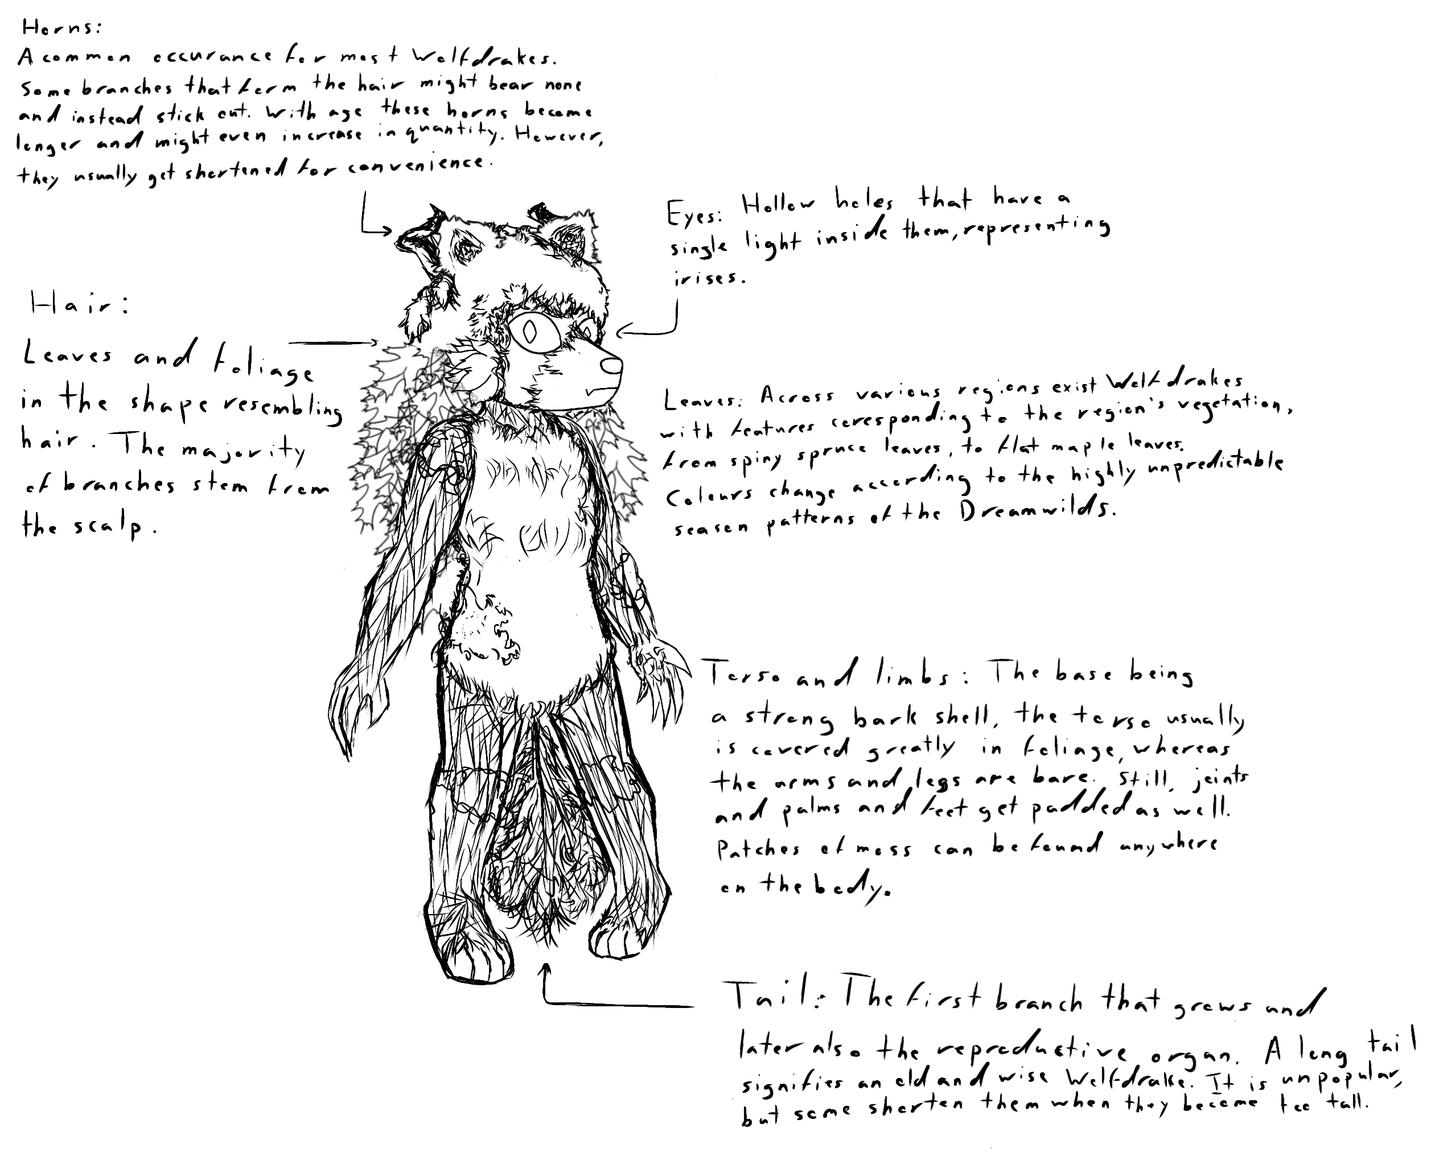 Horns:
A common occurance for most Wolfdrakes.
Some branches that form the hair might bear none
and instead stick out. With age these horns become
longer and might even increase in quantity. However,
they usually get shortened for convenience.
Eyes: Hollow holes that have a
single light inside them, representing
irises.
Hair:
Leaves and foliage
in the shape resembling
hair. The majority
of branches stem from
the scalp.
Leaves: Across various regions exist Wolfdrakes
with features coresponding to the region's vegetation,
from spiny spruce leaves, to flat maple leaves.
Colours change according to the highly unpredictable
season patterns of the Dreamwilds.
Torso and limbs: The base being
a strong bark shell, the torso usually
is covered greatly in foliage, whereas
the arms and legs are bare. Still, joints
and palms and feet get padded as well.
Patches of moss can be found anywhere
on the body.
Tail: The first branch that grows and
later also the reproductive organ. A long tail
signifies an old and wise Wolfdrake. It is unpopular,
but some shorten them when they become too tall.